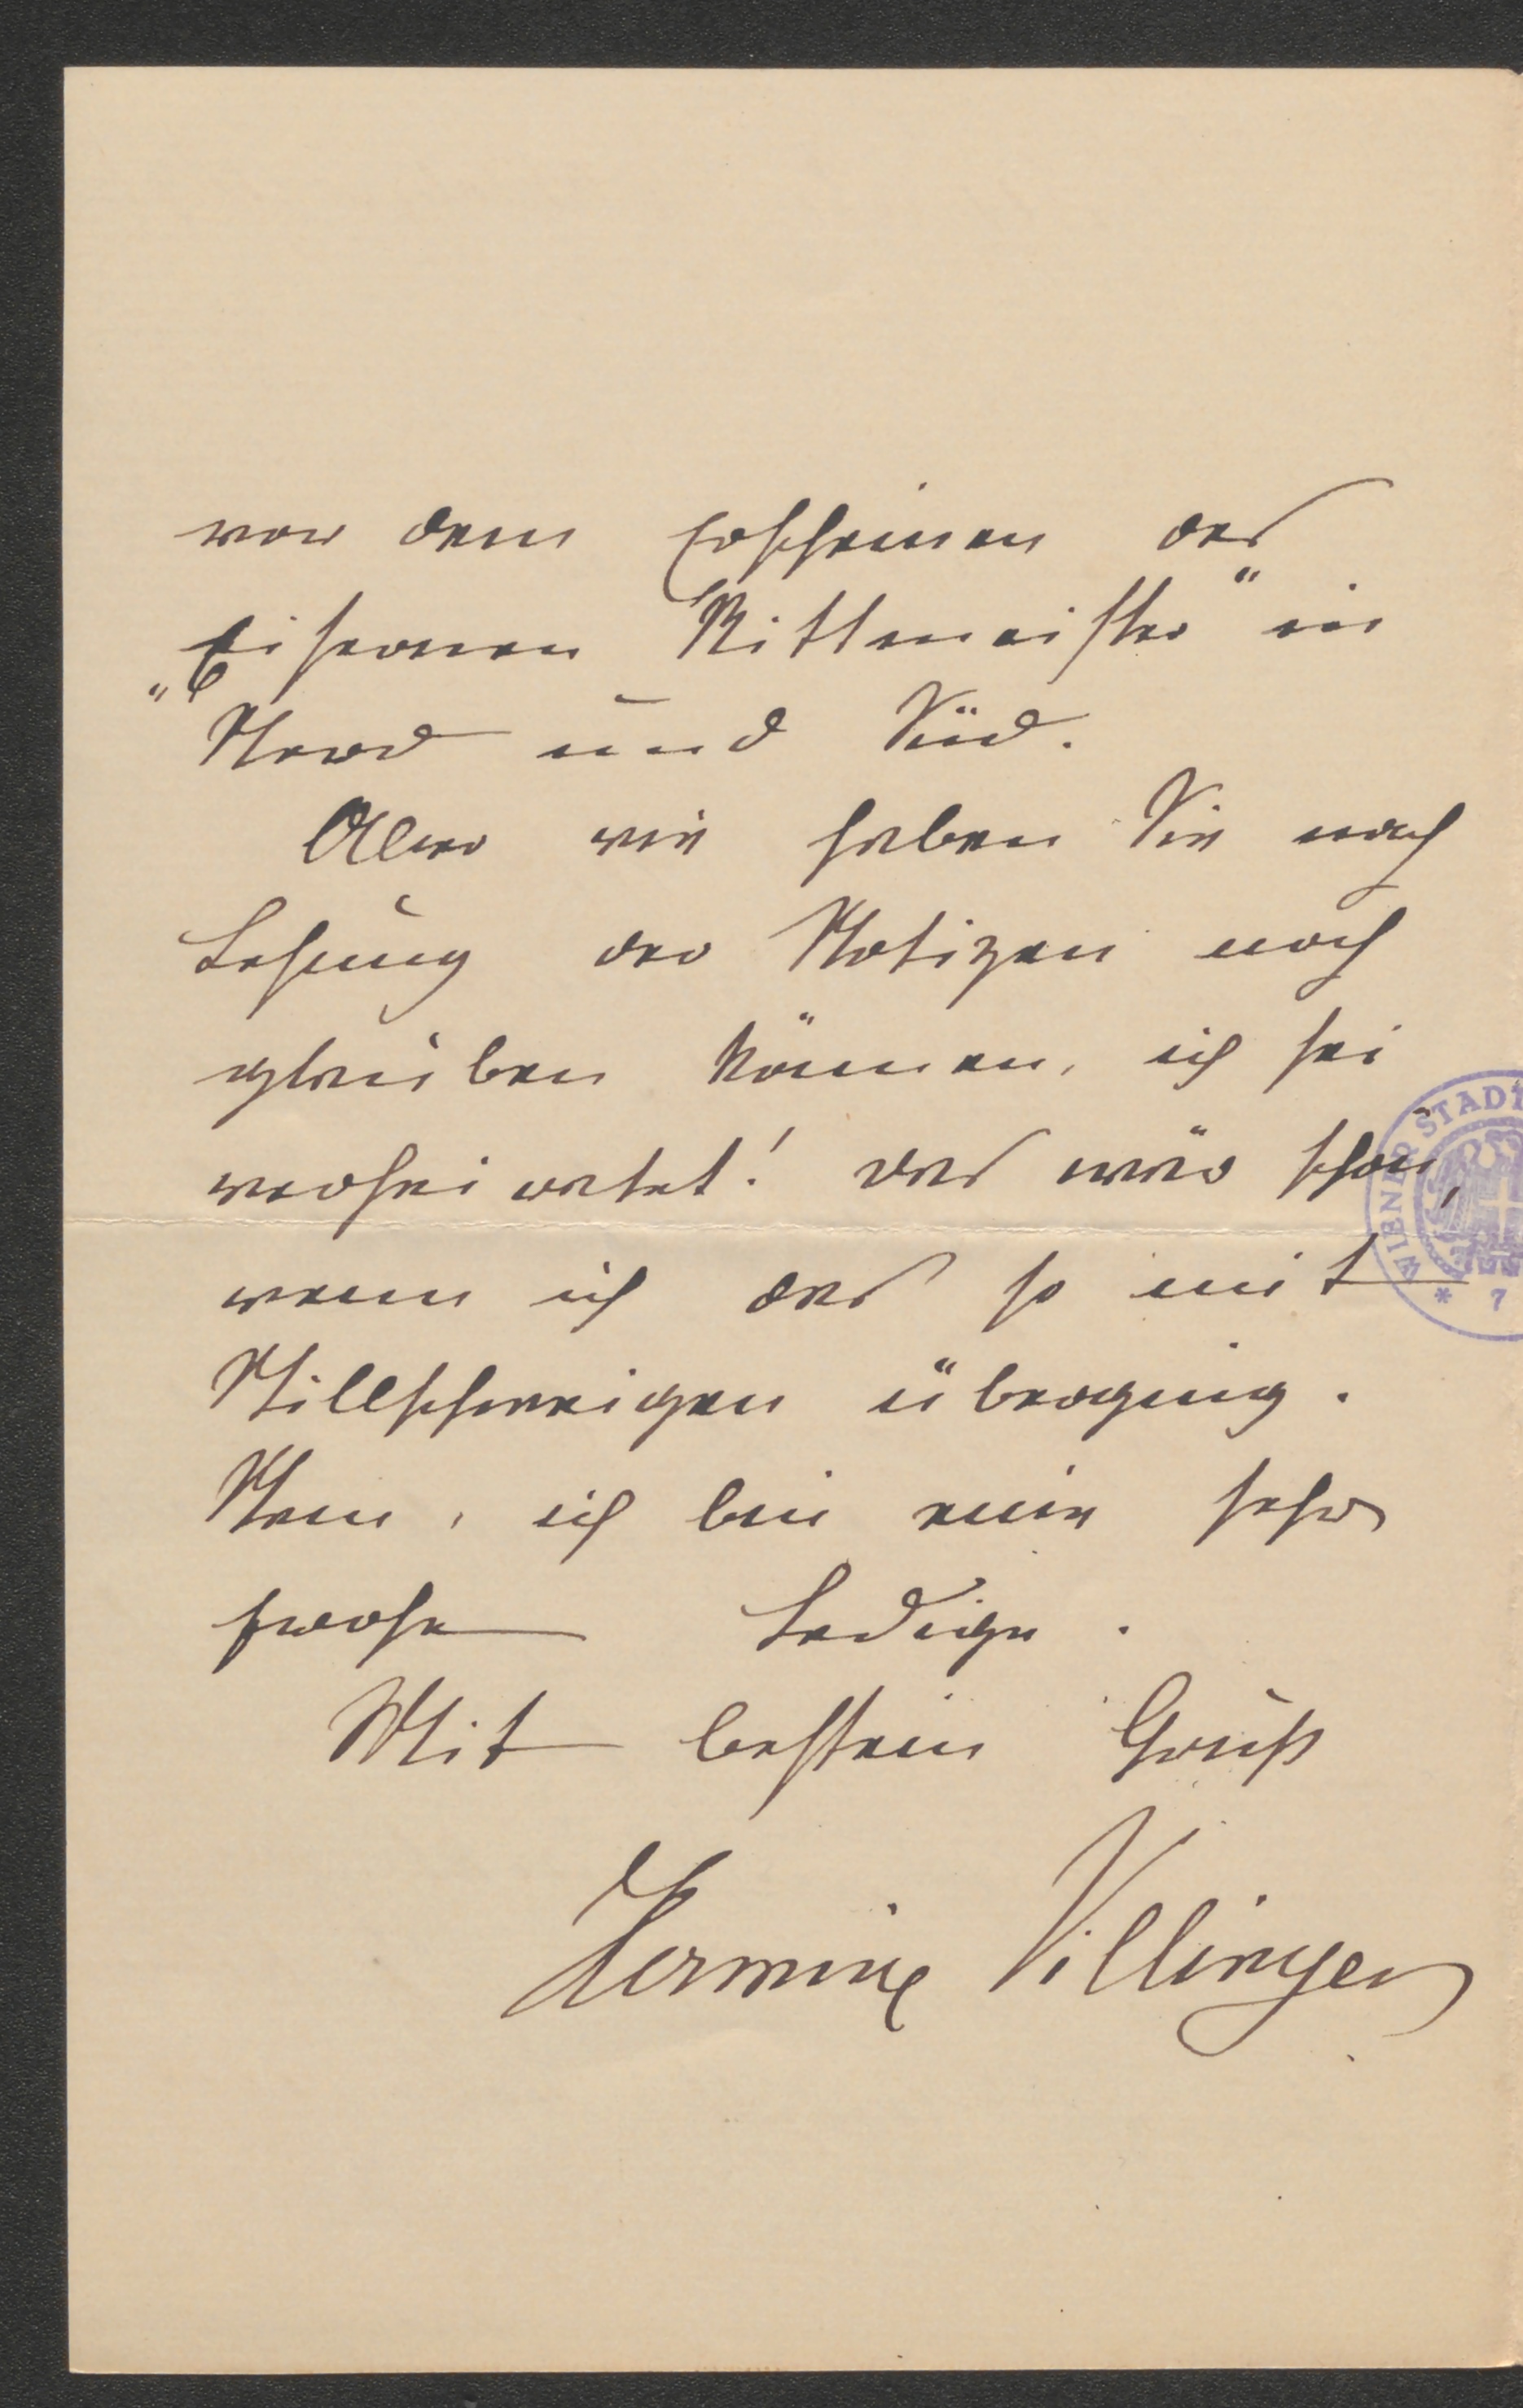 vor dem Erscheinen des
„Eisernen Rittmeister" in
Nord und Süd.
Aber wie haben Sie nach
Lesung der Notizen noch
glauben können, ich sei
verheiratet! das wär schön,
wenn ich das so mit
Stillschweigen überging.
Nein, ich bin eine sehr
frohe Ledige.
Mit bestem Gruß
Hermine Villinger
WIENER STADT
* 7